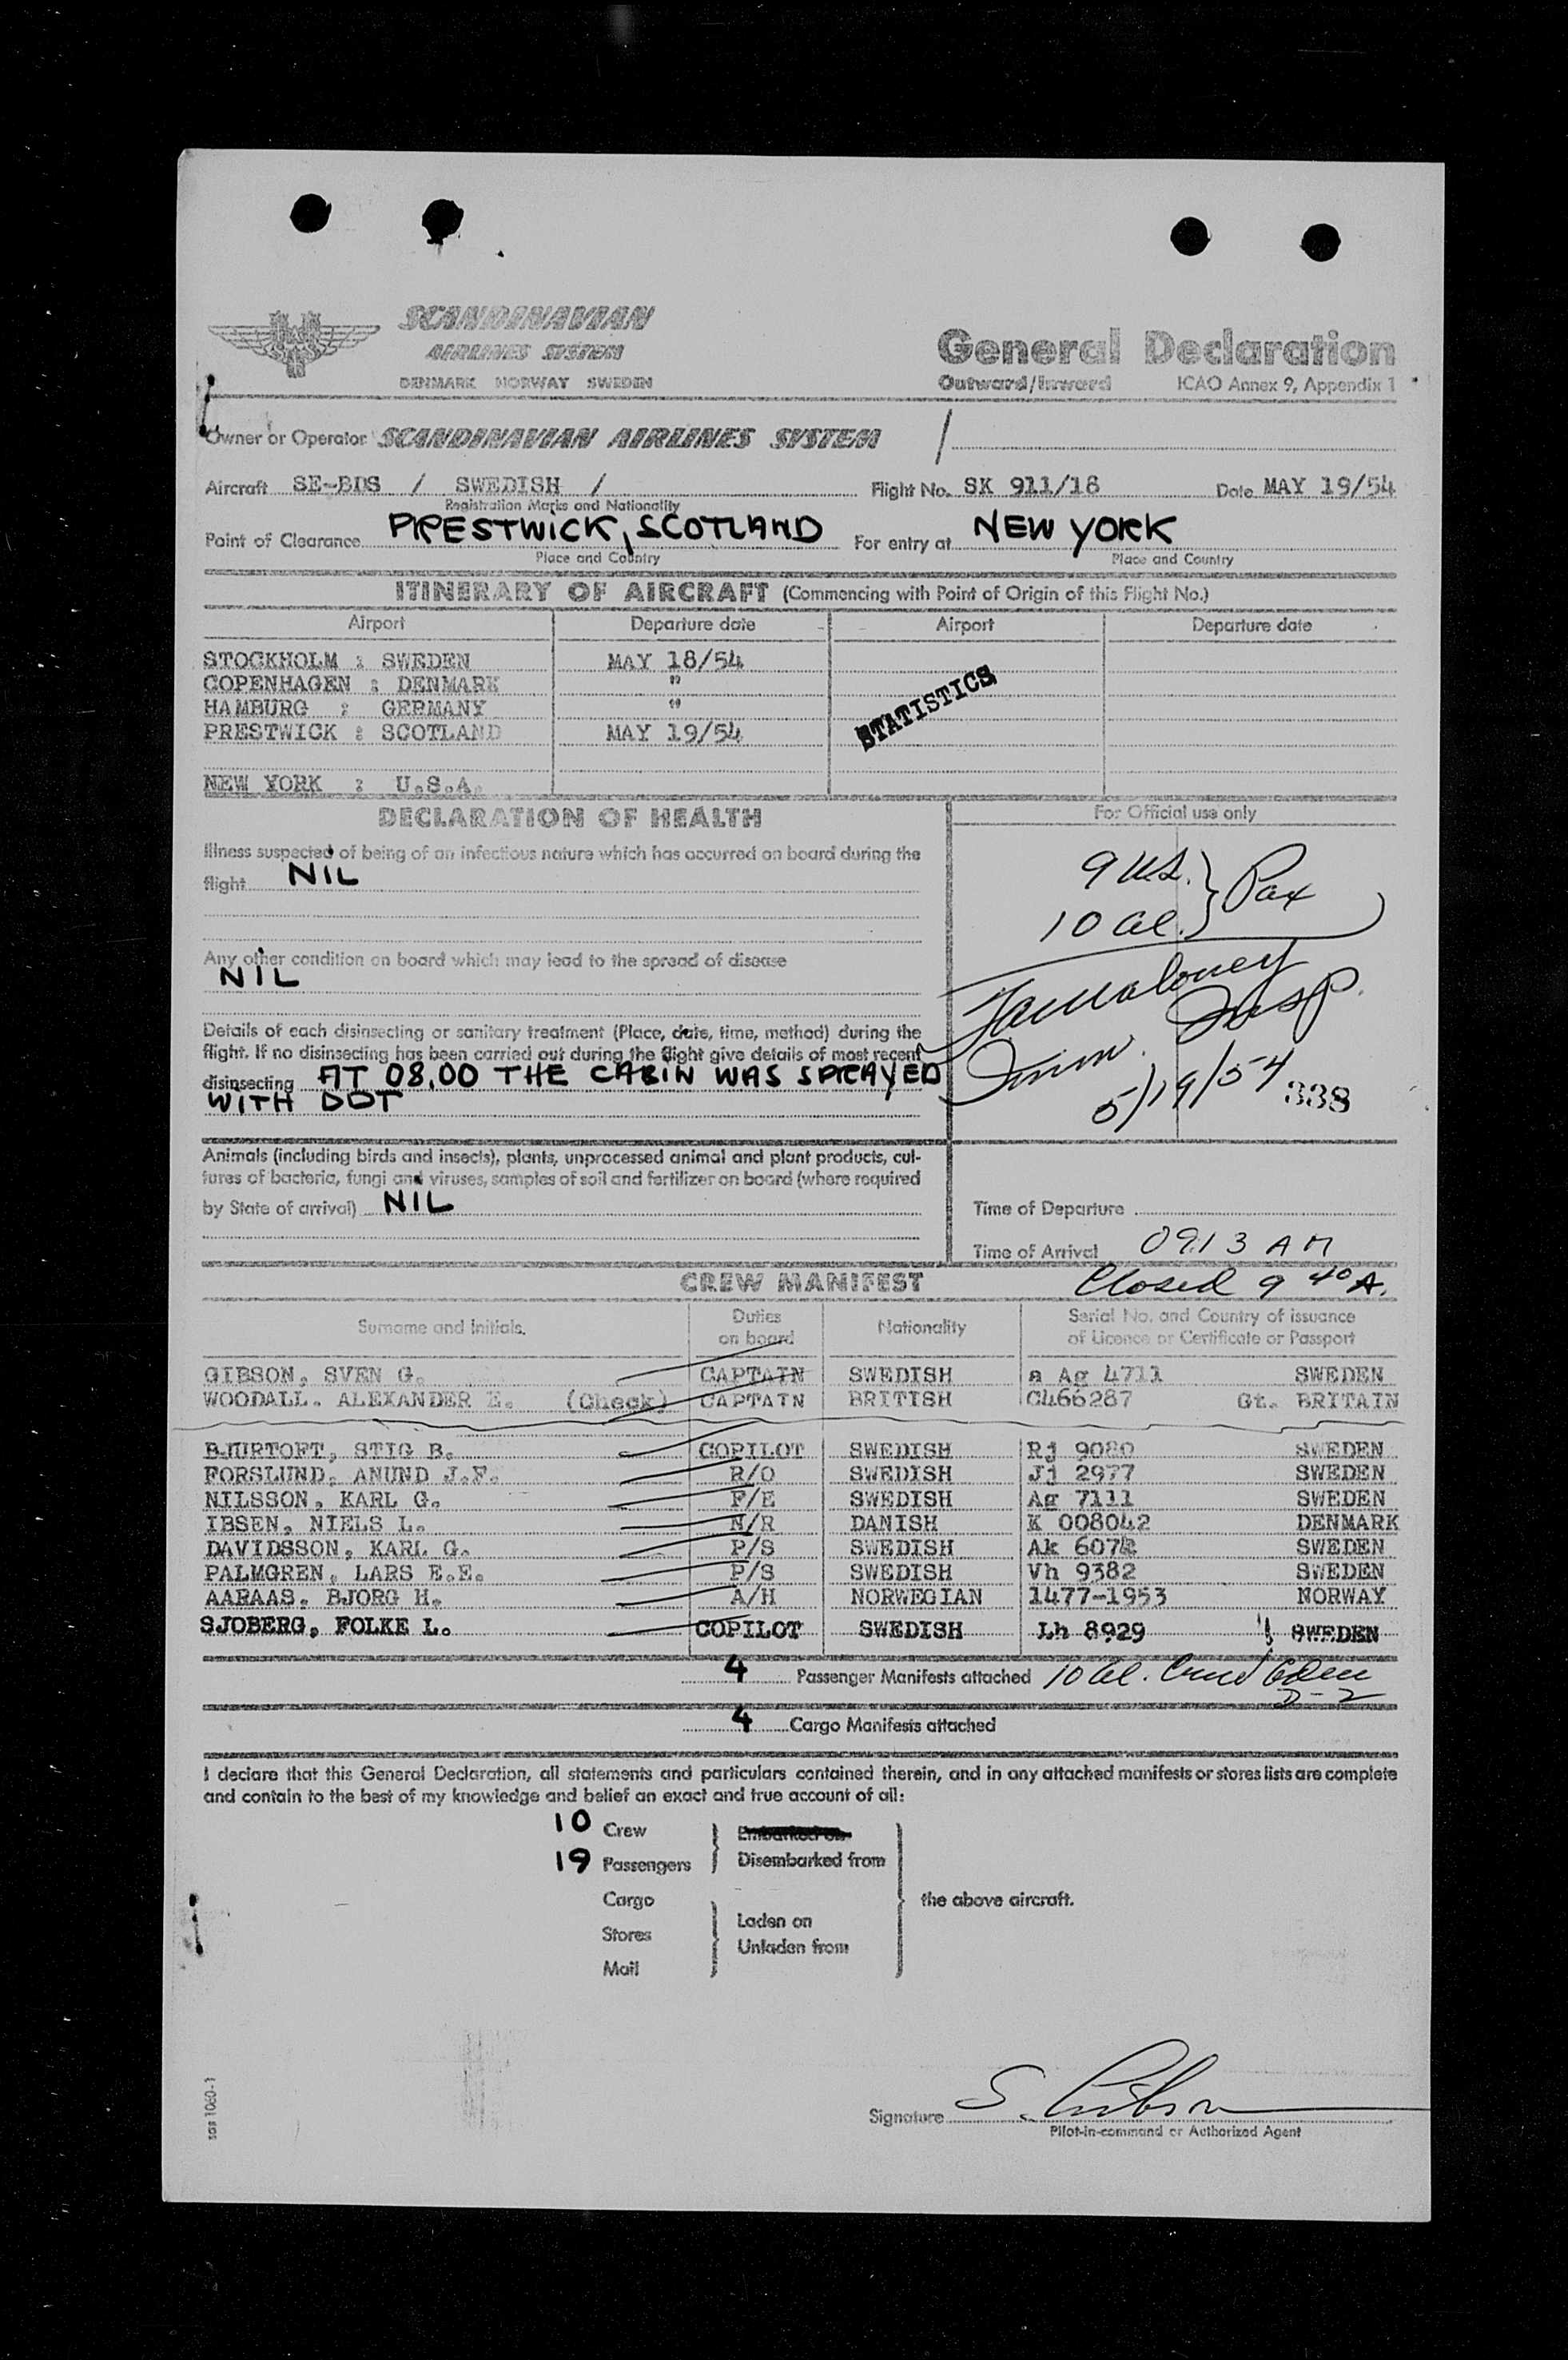 SCANDINAVIAN
AIRLINES SYSTEM
DENMARK NORWAY SWEDEN
General Declaration
Outward/Inward ICAO Annex 9, Appendix 1
Owner or Operator SCANDINAVIAN AIRLINES SYSTEM /
Aircraft SE-BDS / SWEDISH / Flight No. SK 911/18 Date MAY 19/54
Registration Marks and Nationality
Point of Clearance PRESTWICK, SCOTLAND For entry at NEW YORK
Place and Country Place and Country
ITINERARY OF AIRCRAFT (Commencing with Point of Origin of this Flight No.)
Airport Departure date Airport Departure date
STOCKHOLM : SWEDEN MAY 18/54
COPENHAGEN : DENMARK "
HAMBURG : GERMANY "
PRESTWICK : SCOTLAND MAY 19/54
STATISTICS
NEW YORK : U.S.A.
DECLARATION OF HEALTH
Illness suspected of being of an infectious nature which has occurred on board during the
flight NIL
Any other condition on board which may lead to the spread of disease
NIL
Details of each disinsecting or sanitary treatment (Place, date, time, method) during the
flight. If no disinsecting has been carried out during the flight give details of most recent
disinsecting AT 08.00 THE CABIN WAS SPRAYED
WITH DDT
Animals (including birds and insects), plants, unprocessed animal and plant products, cul-
tures of bacteria, fungi and viruses, samples of soil and fertilizer on board (where required
by State of arrival) NIL
For Official use only
9 U.S. } Pax
10 al.
Insp.
Imm.
5/19/54 338
Time of Departure
Time of Arrival 0913 AM
Closed 9 40 A.
CREW MANIFEST
Surname and initials. Duties on board Nationality Serial No. and Country of issuance of Licence or Certificate or Passport
GIBSON, SVEN G. CAPTAIN SWEDISH a Ag 4711 SWEDEN
WOODALL. ALEXANDER E. (Check) CAPTAIN BRITISH C466287 Gt. BRITAIN
BJURTOFT, STIG B. COPILOT SWEDISH Rj 9080 SWEDEN
FORSLUND, ANUND J.F. R/O SWEDISH Jj 2977 SWEDEN
NILSSON, KARL G. F/E SWEDISH Ag 7111 SWEDEN
IBSEN, NIELS L. N/R DANISH K 008042 DENMARK
DAVIDSSON, KARL G. P/S SWEDISH Ak SWEDEN
PALMGREN, LARS E.E. P/S SWEDISH Vh 9382 SWEDEN
AARAAS. BJORG H. A/H NORWEGIAN 1477-1953 NORWAY
SJOBERG, FOLKE L. COPILOT SWEDISH Lh 8929 SWEDEN
4 Passenger Manifests attached 10 al.
4 Cargo Manifests attached
I declare that this General Declaration, all statements and particulars contained therein, and in any attached manifests or stores lists are complete
and contain to the best of my knowledge and belief an exact and true account of all:
10 Crew Embarked on
19 Passengers Disembarked from
Cargo the above aircraft.
Stores Laden on
Unladen from
Mail
Signature S. Gibson
Pilot-in-command or Authorized Agent
sas 1060-1